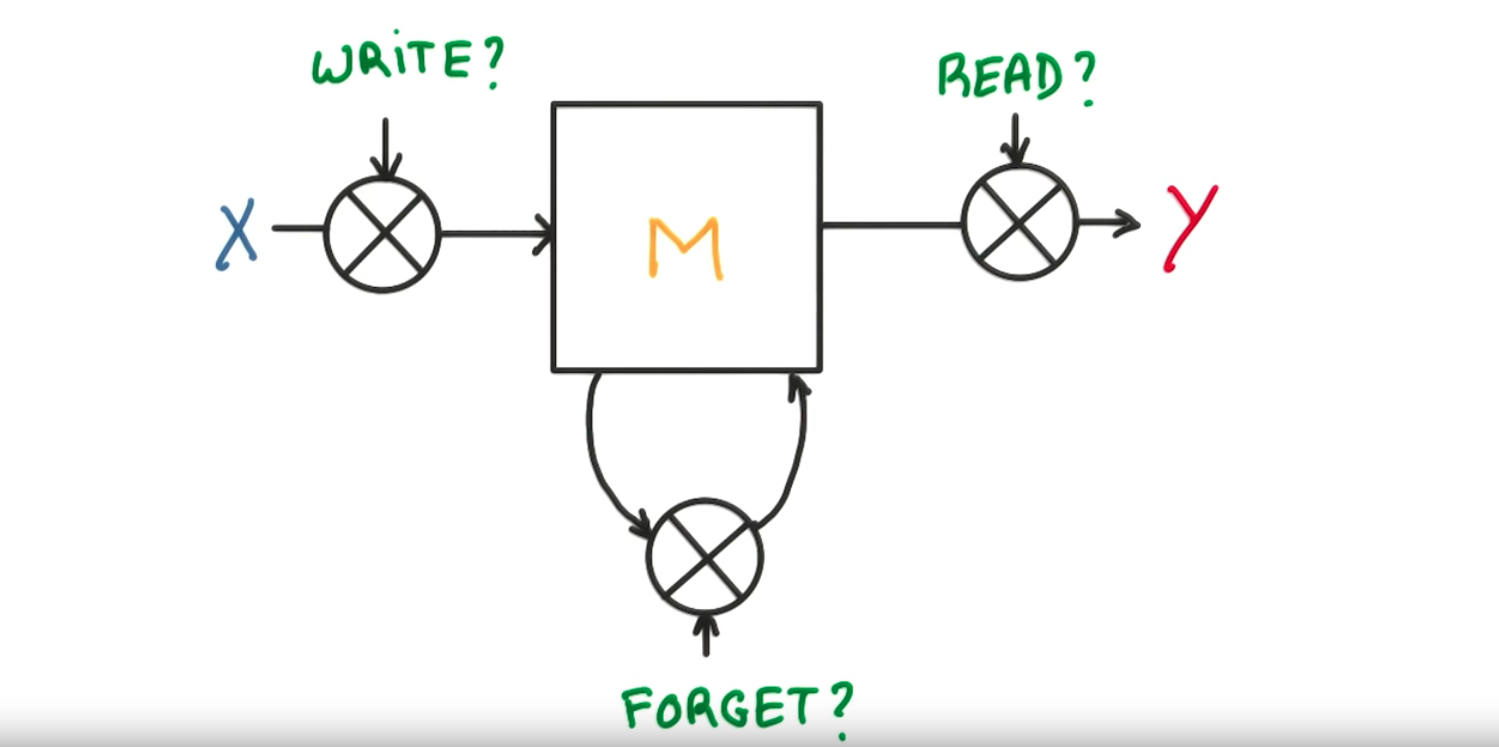 WRiTE?
READ?
X
M
Y
FORGET?